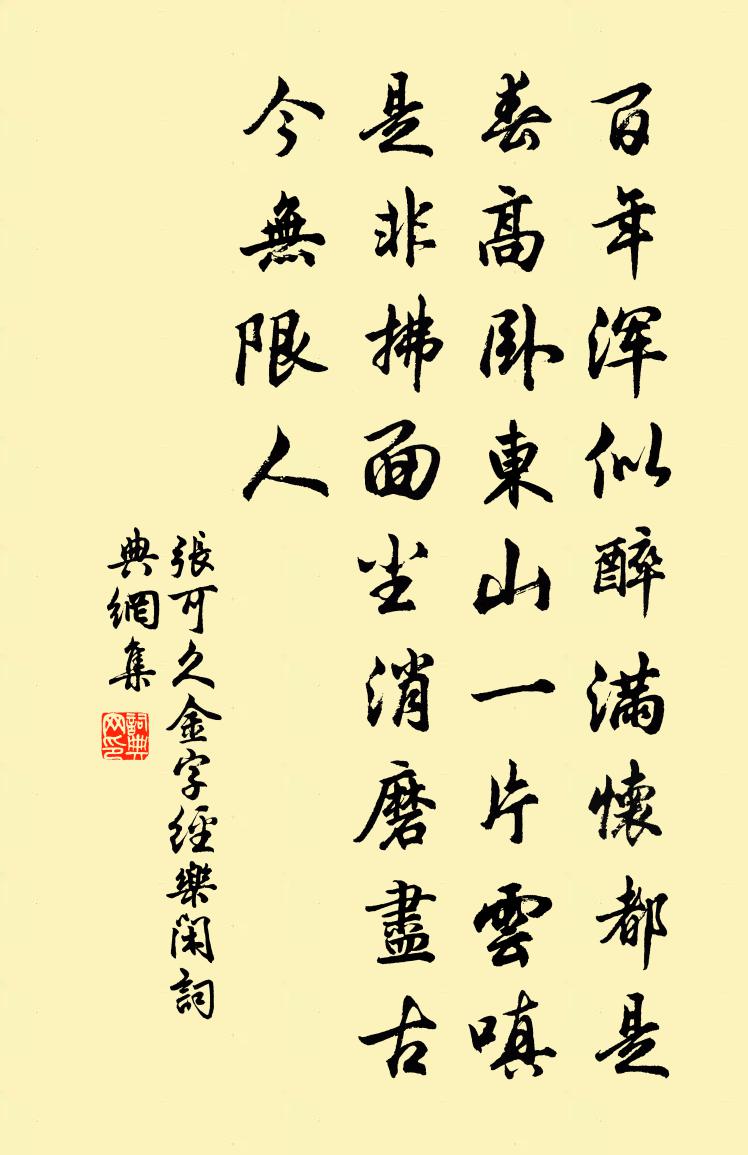 百年渾似醉滿懷都是
春高卧東山一片雲嗔
是非拂面塵消磨盡古
今無限人
張可久金字經樂閑詞
典網集
詞典网印